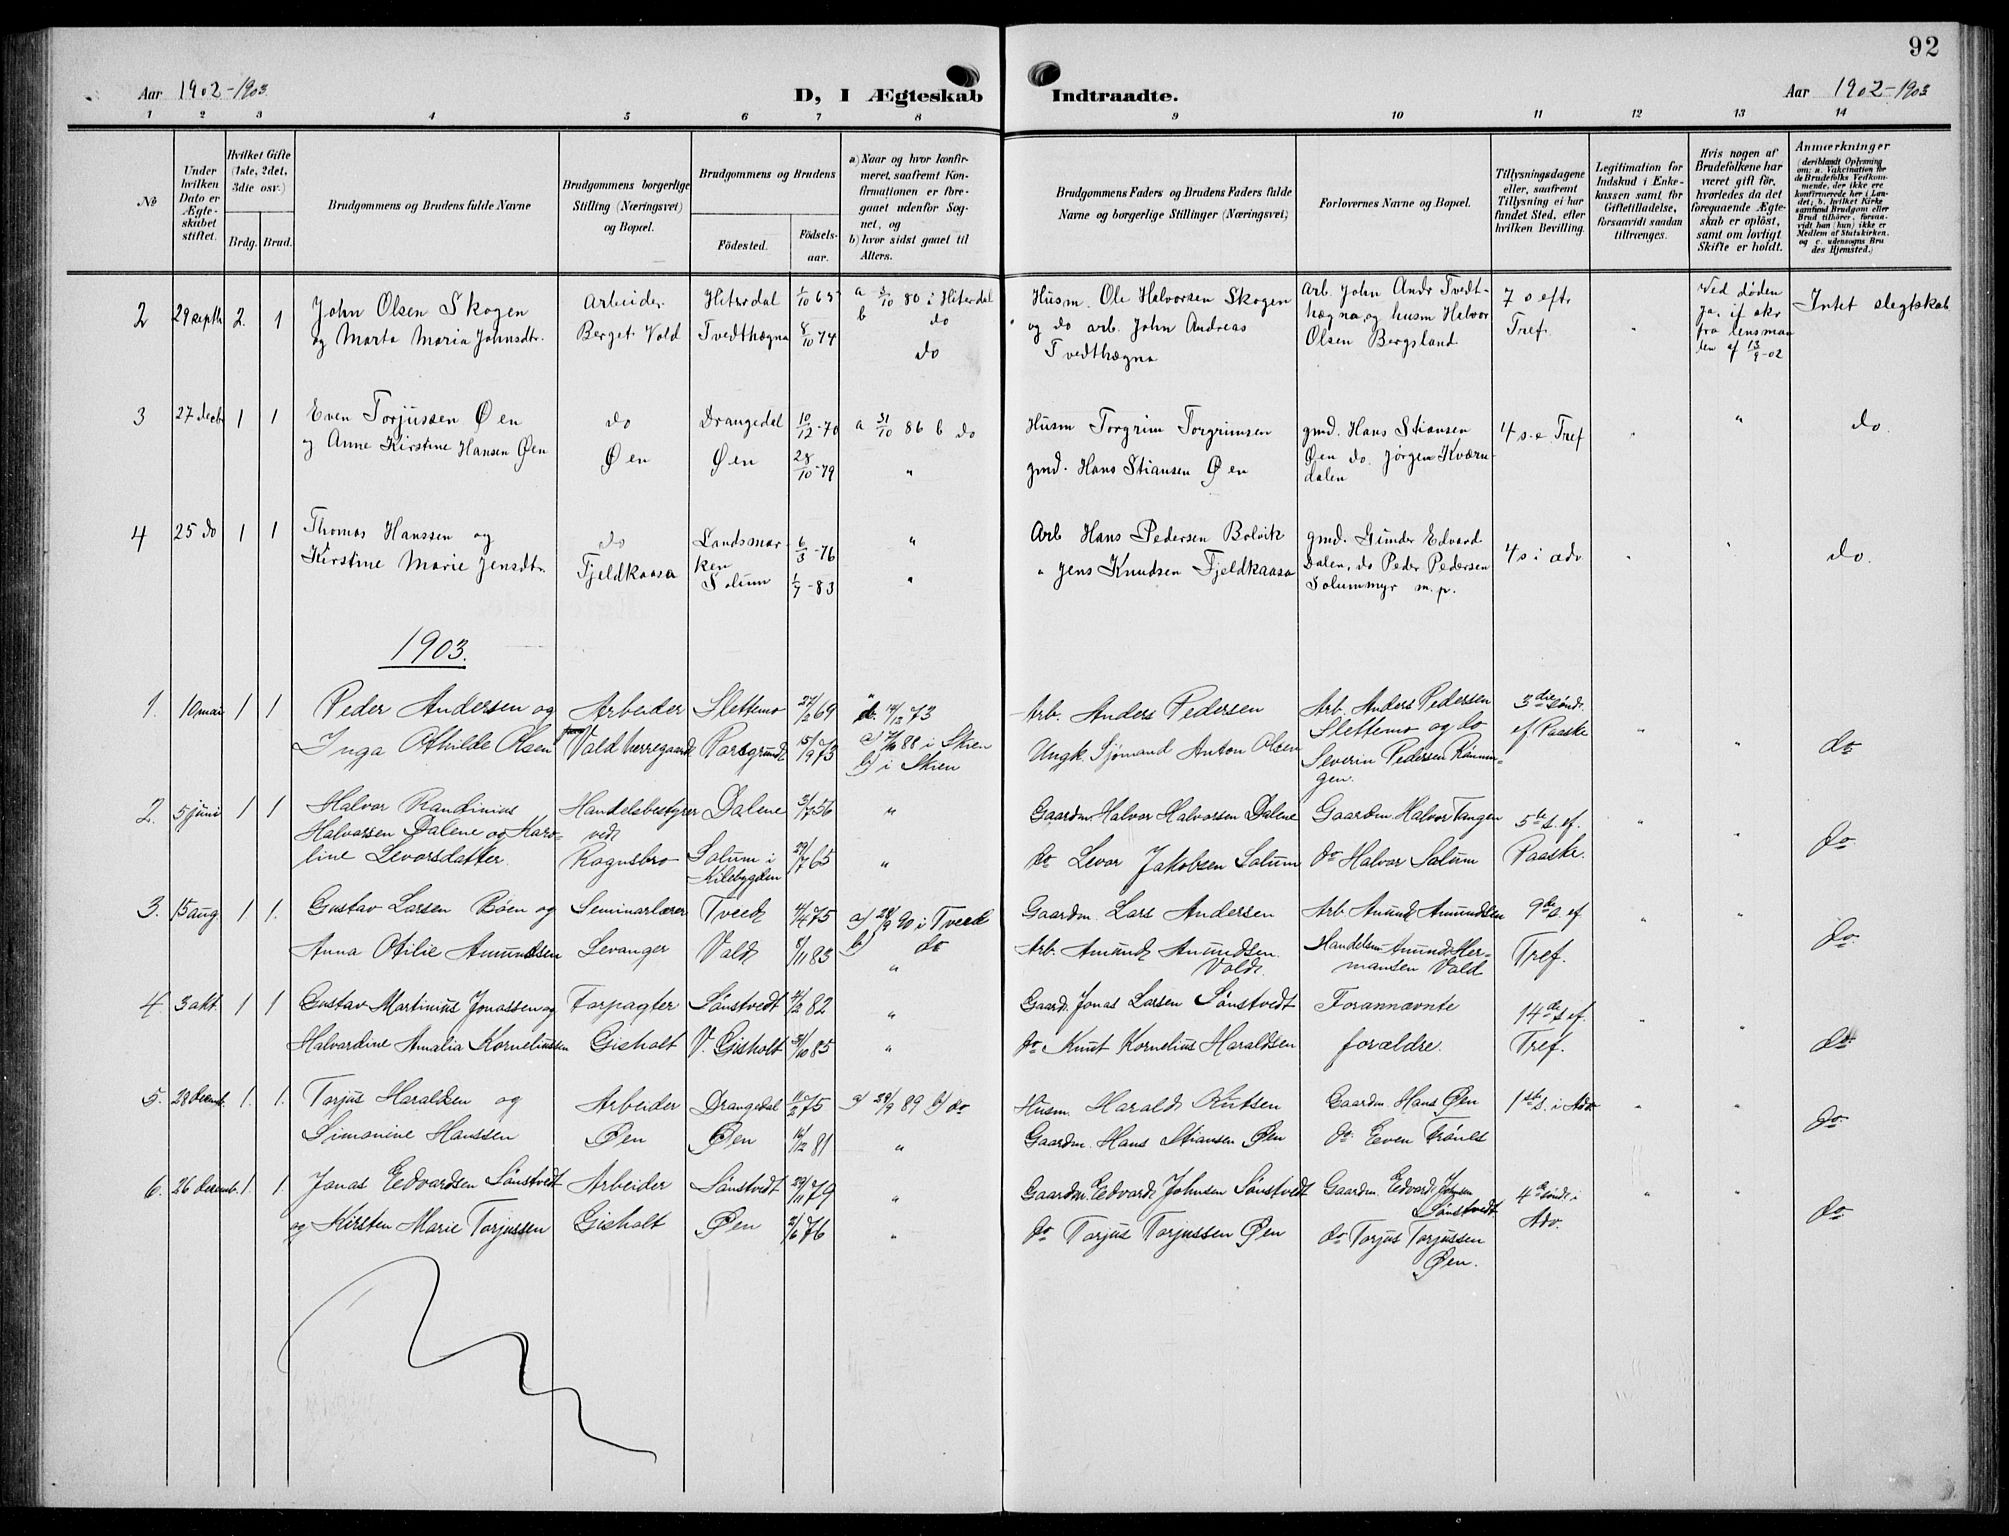 92
Aar 1902-1903
D, I Ægteskab Indtraadte.
Aar 1902-1903
1 2 3 4 5 6 7 8 9 10 11 12 13 14
No
Under hvilken Dato er Ægteskabet stiftet.
Hvilket Gifte (1ste, 2det, 3die osv.)
Brdg. Brud.
Brudgommens og Brudens fulde Navne
Brudgommens borgerlige Stilling (Næringsvei) og Bopæl.
Brudgommens og Brudens
Fødested. Fødselsaar.
a) Naar og hvor konfirmeret, saafremt Konfirmationen er foregaaet udenfor Sognet, og
b) hvor sidst gaaet til Alters.
Brudgommens Faders og Brudens Faders fulde Navne og borgerlige Stillinger (Næringsvei)
Forlovernes Navne og Bopæl.
Tillysningsdagene eller, saafremt Tillysning ei har fundet Sted, efter hvilken Bevilling.
Legitimation for Indskud i Enkekassen samt for Giftetilladelse, forsaavidt saadan tiltrænges.
Hvis nogen af Brudefolkene har været gift før, hvorledes da det foregaaende Ægteskab er opløst, samt om lovligt Skifte er holdt.
Anmærkninger (deriblandt Oplysning om: a. Vaccination for de Brudefolks Vedkommende, der ikke ere konfirmerede her i Landet; b. hvilket Kirkesamfund Brudgom eller Brud tilhører, forsaavidt han (hun) ikke er Medlem af Statskirken, og c. udensogns Brudes Hjemsted.)
2 29 septb 2. 1 John Olsen Skogen Arbeider Hiterdal 1/10 65 a 3/10 80 i Hiterdal Husm. Ole Halvorsen Skogen Arb. John Andr Tvedt- 7 s eftr " Ved døden Intet slegtskab
og Marta Maria Johnsdtr. Berget Vold Tvedthægna 8/10 74 b do og do arb. John Andreas hægna, og husm Halvor Tref. Ja, if. skr
do Tvedthægna Olsen Bergsland fra lensman
den af 13/9-02
3 27 decb 1 1 Even Torjussen Øen do Drangedal 10/12-70 a 31/10 86 b do Husm Torgrim Torgrimsen gmd. Hans Stiansen 4 s. e Tref " " do.
og Anne Kirstine Hansen Øen Øen Øen 28/10-79 " gmd. Hans Stiansen Øen Øen do. Jørgen Kværn-
dalen
4 25 do 1 1 Thomas Hanssen og do Landsmar- 6/3-76 " Arb Hans Pedersen Bolvik gmd. Gunder Edvard 4 s i adv " " do.
Kirstine Marie Jensdtr. Fjeldkaasa ken
Solum 1/7-83 " " Jens Knudsen Fjeldkaasa Dalen, do Peder Pedersen
Solummyr m.p.
1903.
1. 10 mai 1 1 Peder Andersen og Arbeider Slettemo 27/2 69 " Arb. Anders Pedersen Arb. Anders Pedersen 3die sønd. " " do
Inga Othilde Olsen Vald herregaard Porsgrund 15/9 73 88 i Skien Ungk. Sjømand Anton Olsen Slettemo og do ef. Paaske
b) i Skien Severin Pedersen Rønnin-
gen.
2. 5 juni 1 1 Halvor Handelsbestyrer Dalene 3/7 56 " Gaardm. Halvor Halvorsen Dalene Gaardm. Halvor Tangen 5te s. ef. " " do
Halvorsen Dalene og Karo- ved
line Levorsdatter. Rognsbro Solum i 29/7 65 " do Levor Jakobsen Solum do Halvor Solum Paaske.
Kilebygden
3. 15 aug 1 1. Gustav Larsen Bøen og Seminarlærer Tveed 4/4 75 a) 28/9 90 i Tveed Gaardm. Lars Andersen Arb. Amund Amundsen 9de s. ef " " do.
Anna Otilie Amundsen Levanger Vald 5/11 83 b) do Arb. Amund Amundsen Handelsm. Amund Her- Tref.
" Vald. mansen Vald
4. 3 okt. 1 1 Gustav Martinius Jonassen og Forpagter Sønstvedt 4/2 82 " Gaard. Jonas Larsen Sønstvedt Forannævnte 14de s. ef. " " do
Halvardine Amalia Korneliussen Gisholt V. Gisholt 31/10 85 " do Knut Kornelius Haraldsen forældre. Tref.
5. 28 decemb. 1. 1. Torjus Haraldsen og Arbeider Drangedal 11/2 75 a) 29/9 89 b) do Husm. Harald Knutsen Gaardm. Hans Øen 1ste s. i Adv " " do
Simonine Hanssen Øen Øen 16/12 81 " Gaardm. Hans Stiansen Øen do. Even
6. 26 decemb. 1. 1. Jonas Edvardsen Sønstvedt Arbeider Sønstvedt 29/11 79 " Gaardm. Edvard Johnsen Sønstvedt Gaardm. Edvard Johnsen 4de sønd. i " " do
Sønstvedt Adv.
og Kirsten Marie Torjussen Gisholt Øen 2/6 76 " do Torjus Torjussen Øen do Torjus Torjussen
Øen.